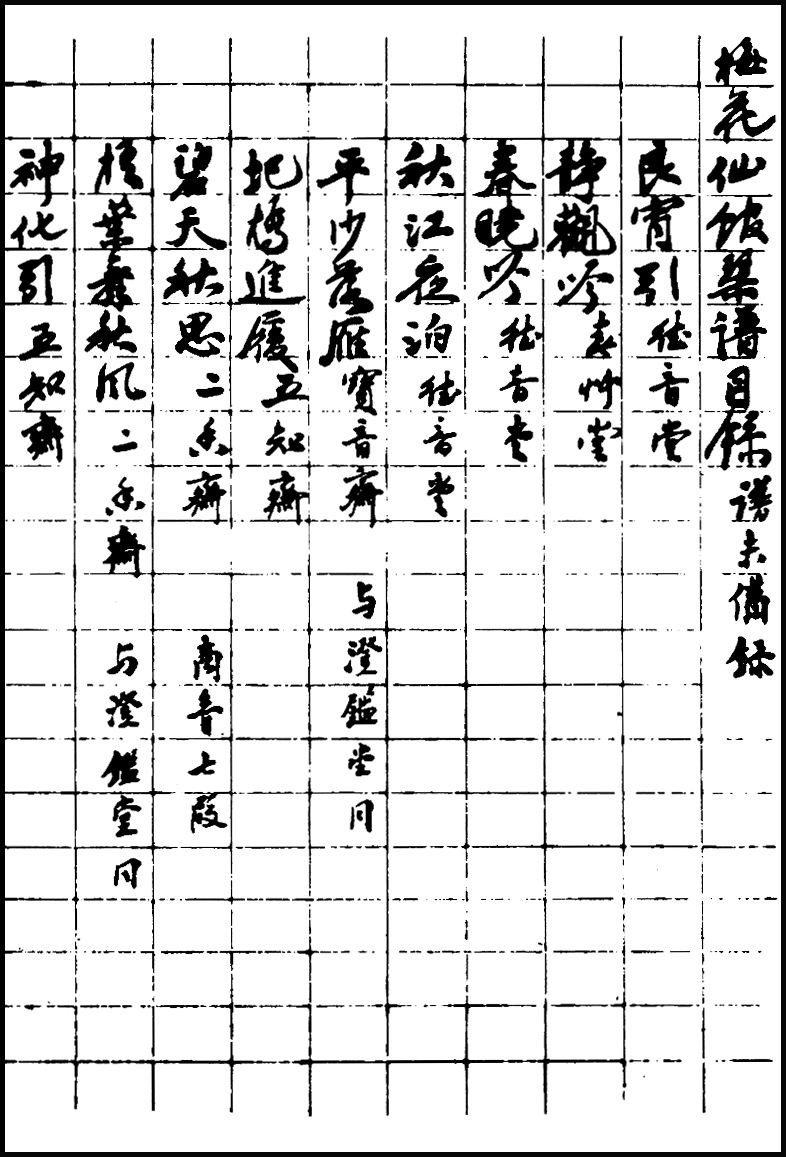 梅花仙館琴譜目錄 譜未備錄
良宵引 徳音堂
靜觀吟 春艸堂
春曉吟 徳音堂
秋江夜泊 徳音堂
平沙落雁 寶音齋 与澄鑑堂同
圯橋進履 五知齋
碧天秋思 二香齋 商音七段
梧葉舞秋風 二香齋 与澄鑑堂同
神化引 五知齋